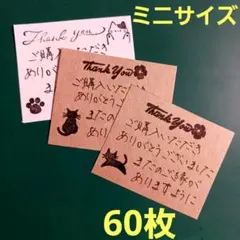 ミニサイズ
Thank you
ご購入いただき
ありがとうござ
また
Thank You
ご購入いただき
ありがとうござ
またの
Thank You
ご購入いただき
ありがとうございました
またのご縁が
ありますように
60枚